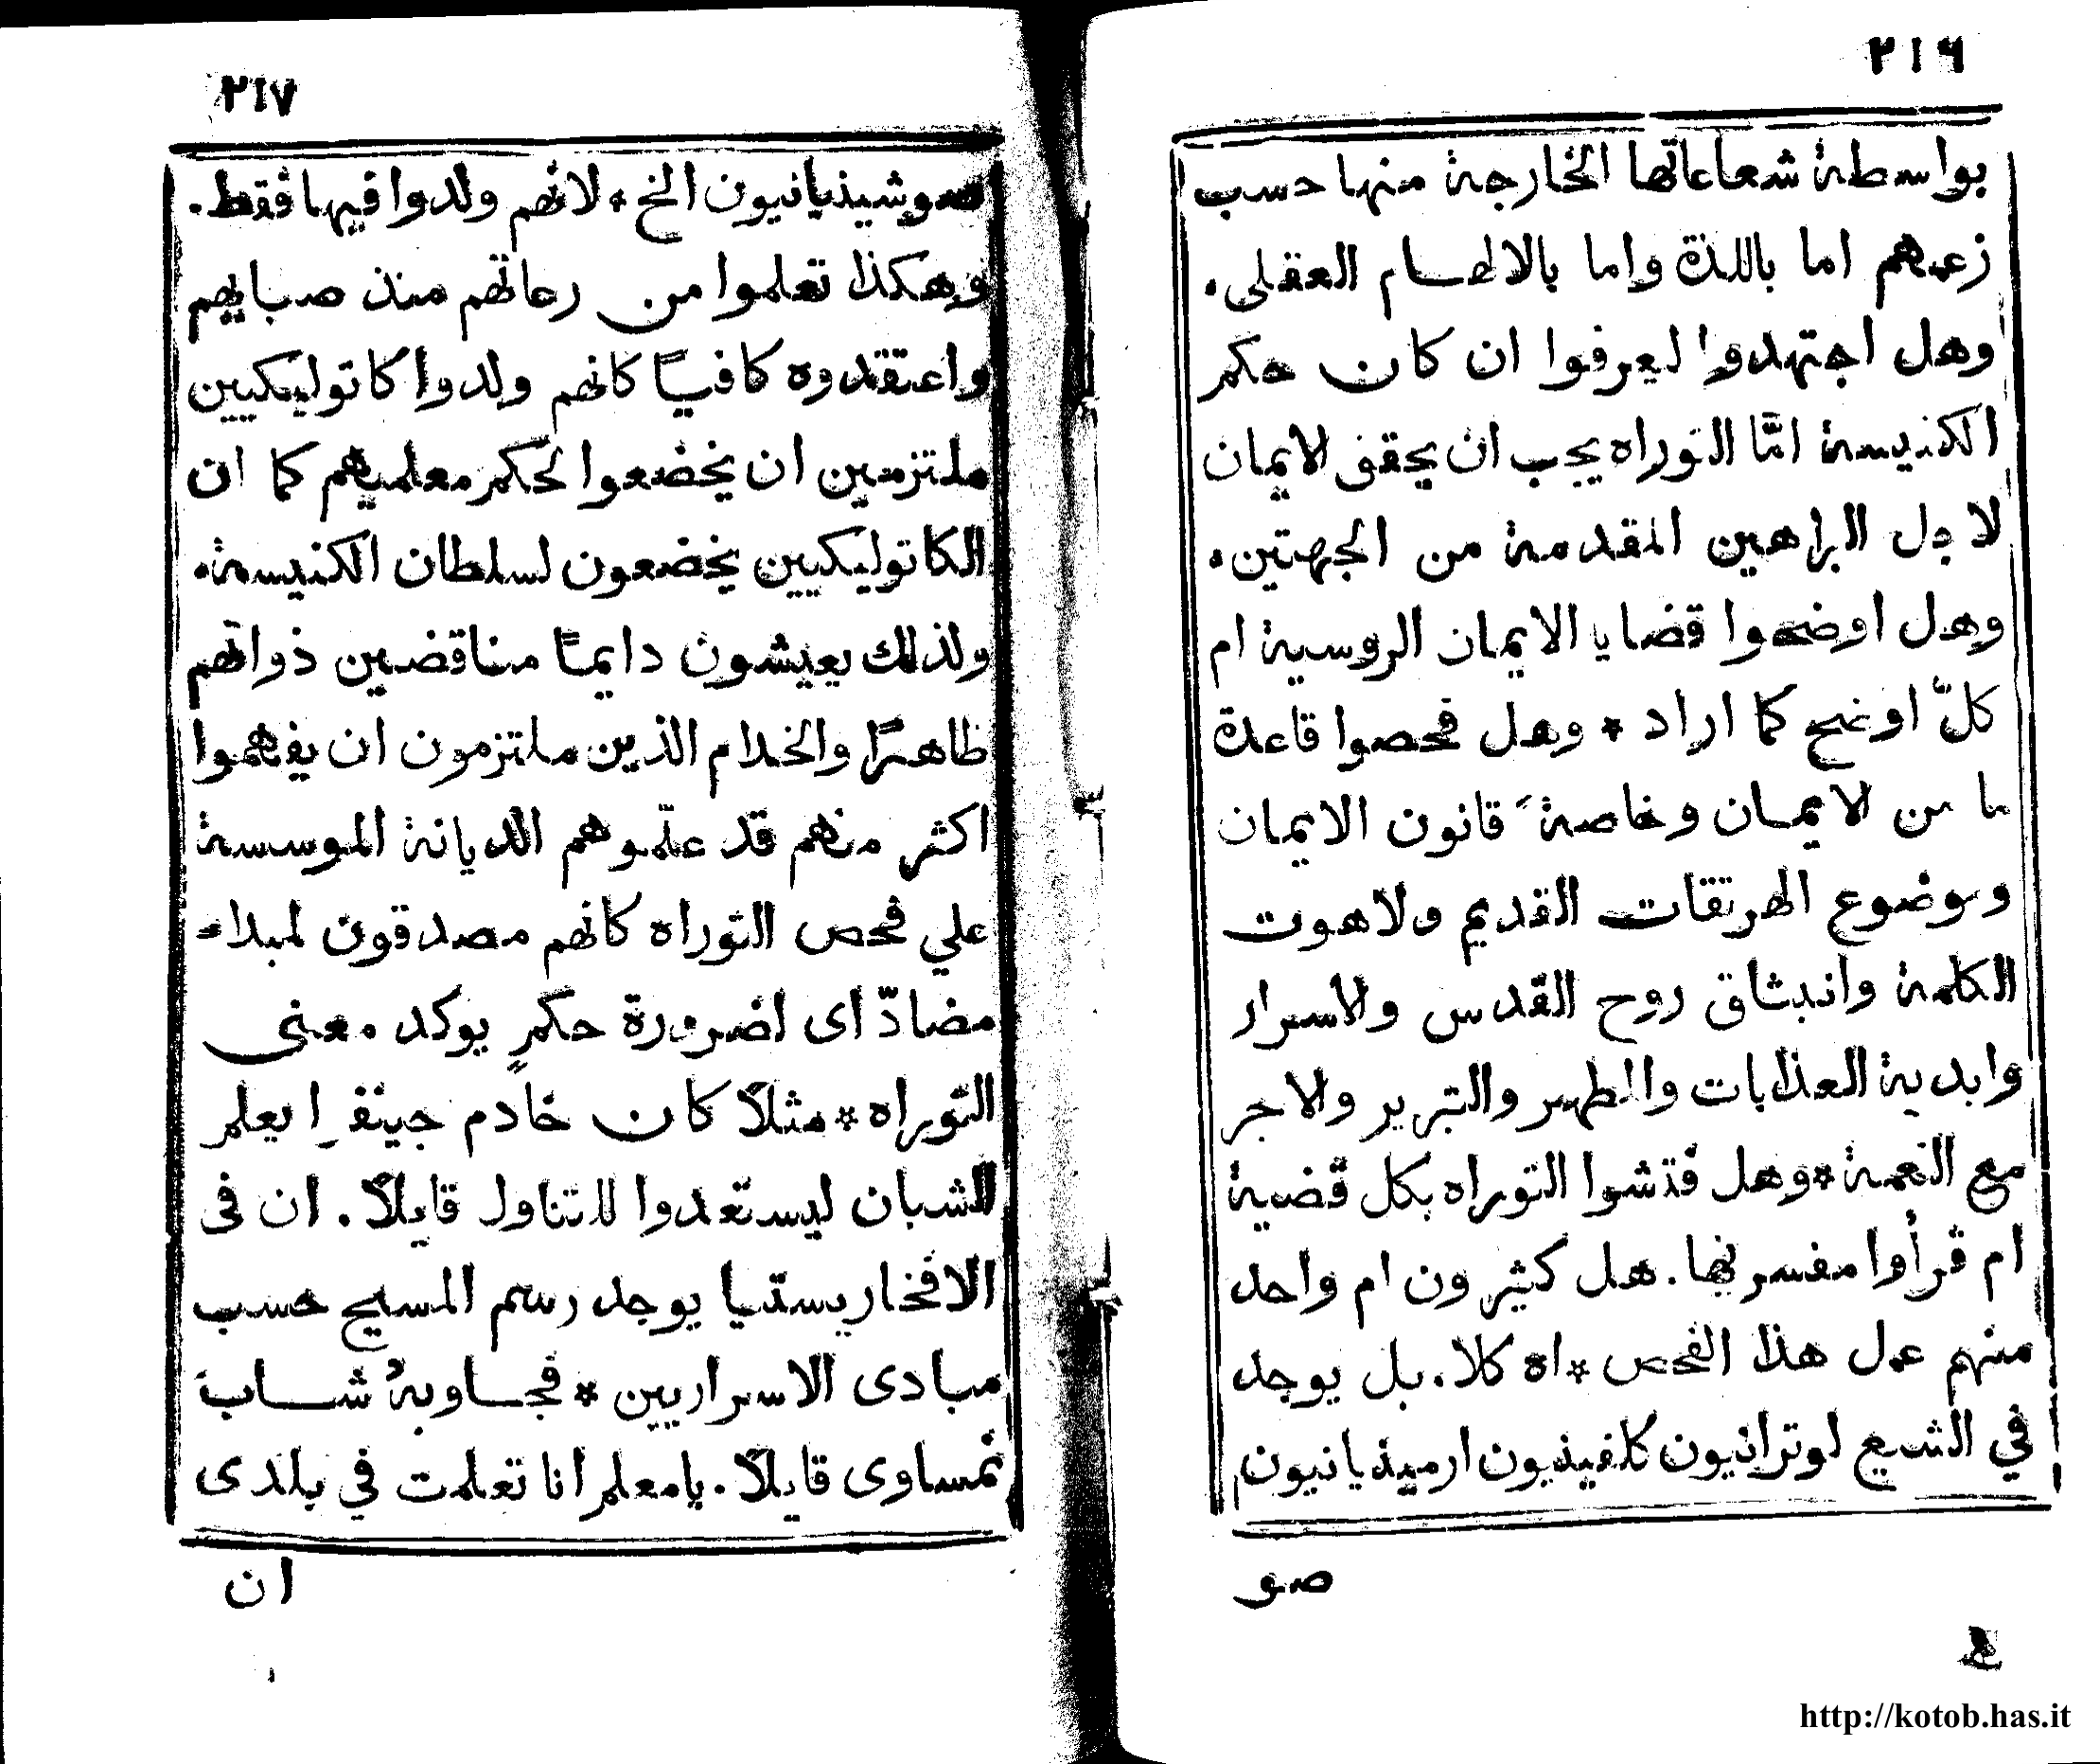 ٢١٦
بواسطة شعاعاتها الخارجة منها حسب
زعمهم اما باللذة واما بالالهام العقلى.
وهل اجتهدوا ليعرفوا ان كان حكم
الكنيسة امَّا التوراه يجب ان يحقق لايمان
لا دل البراهين المقدمة من الجهتين.
وهل اوضحوا قضايا الايمان الروسية ام
كلّ اوضح كما اراد * وهل فحصوا قاعدة
ما من لايمان وخاصةً قانون الايمان
وموضوع الهرتقات القديم ولاهوت
الكلمة وانبثاق روح القدس والاسرار
وابدية العذابات والمطهر والتبرير والاجر
مع النعمة * وهل فتشوا التوراه بكل قضية
ام قرأوا مفسرنها. هل كثيرون ام واحد
منهم عمل هذا الفحص * اه كلا. بل يوجد
في الشيع لوترانيون كلفينيون ارمينيانيون
صو
٢١٧
صوشينيانيون الخ * لانهم ولدوا فيها فقط.
وهكذا تعلموا من رعاتهم منذ صبايهم
واعتقدوه كافيًا كانهم ولدوا كاتوليكيين
ملتزمين ان يخضعوا لحكم معلميهم كما ان
الكاتوليكيين يخضعون لسلطان الكنيسة.
ولذلك يعيشون دايمًا مناقضين ذواتهم
ظاهرًا والخدام الذين ملتزمون ان يفهموا
اكثر منهم قد علّموهم الديانة الموسسة
علي فحص التوراه كانهم مصدقون لمبداء
مضادّ اى لضرورة حكمٍ يوكد معنى
التوراه * مثلاً كان خادم جينفرا يعلم
الشبان ليستعدوا للتناول قايلاً. ان فى
الافخاريستيا يوجد رسم المسيح حسب
مبادى الاسراريين * فجاوبهُ شاب
نمساوى قايلاً. يا معلم انا تعلمت في بلدى
ان
http://kotob.has.it